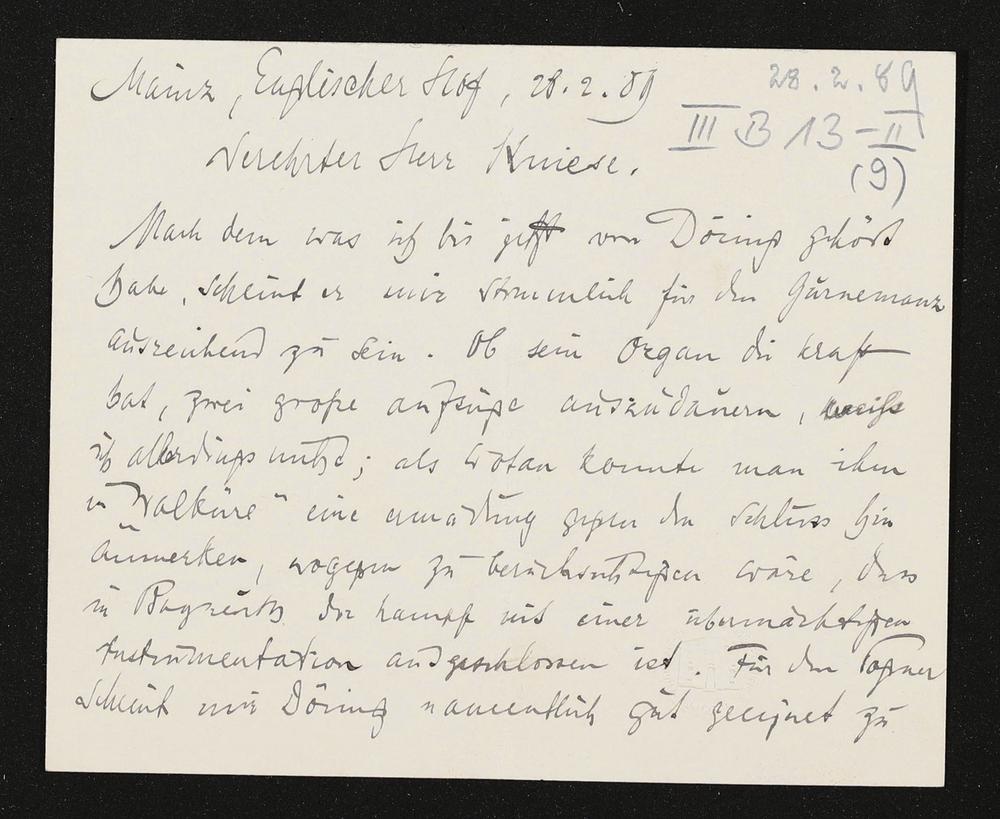 Mainz, Englischer Hof, 28.2.89
28.2.89
III B 13-II
(9)
Verehrter Herr Kniese.
Nach dem was ich bis jetzt von Döring gehört
habe, scheint er mir stimmlich für den Gurnemanz
ausreichend zu sein. Ob sein Organ die Kraft
hat, zwei große Aufzüge auszudauern, weiß
ich allerdings nicht; als Wotan konnte man ihm
in "Walküre" eine Ermattung gegen den Schluss hin
anmerken, wogegen zu berücksichtigen wäre, dass
in Bayreuth der Kampf mit einer übermächtigen
Instrumentation ausgeschlossen ist. Für den Pogner
scheint mir Döring namentlich gut geeignet zu